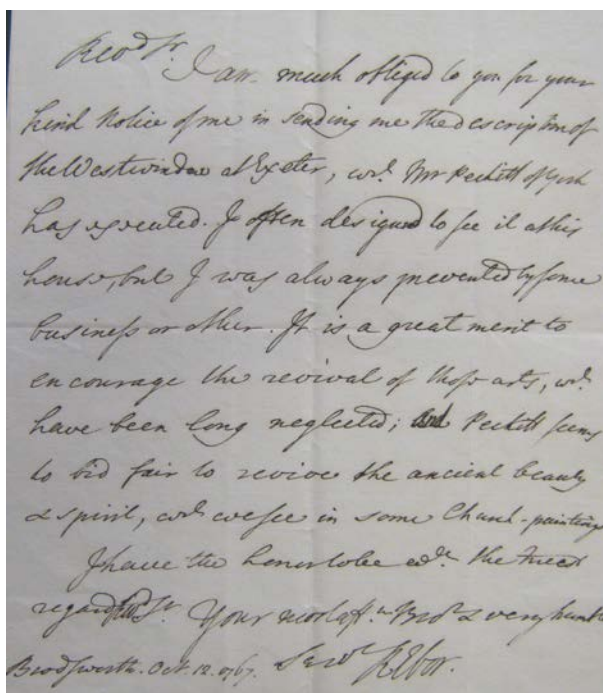 Revd Sr.
I am much obliged to you for your
kind Notice of me in sending me the description of
the Westwindow at Exeter, wch. Mr Peckitt of York
has executed. I often designed to see it at his
house, but I was always prevented by some
business or other. It is a great merit to
encourage the revival of those arts, wch.
have been long neglected; and Peckitt seems
to bid fair to revive the ancient beauty
& spirit, wch we see in some Church-painting
I have the honor to be wth. the truest
regard Sr. Your most afft. Bror & very humble
Brodsworth. Oct. 12. 1767. Servt. R Ebor.